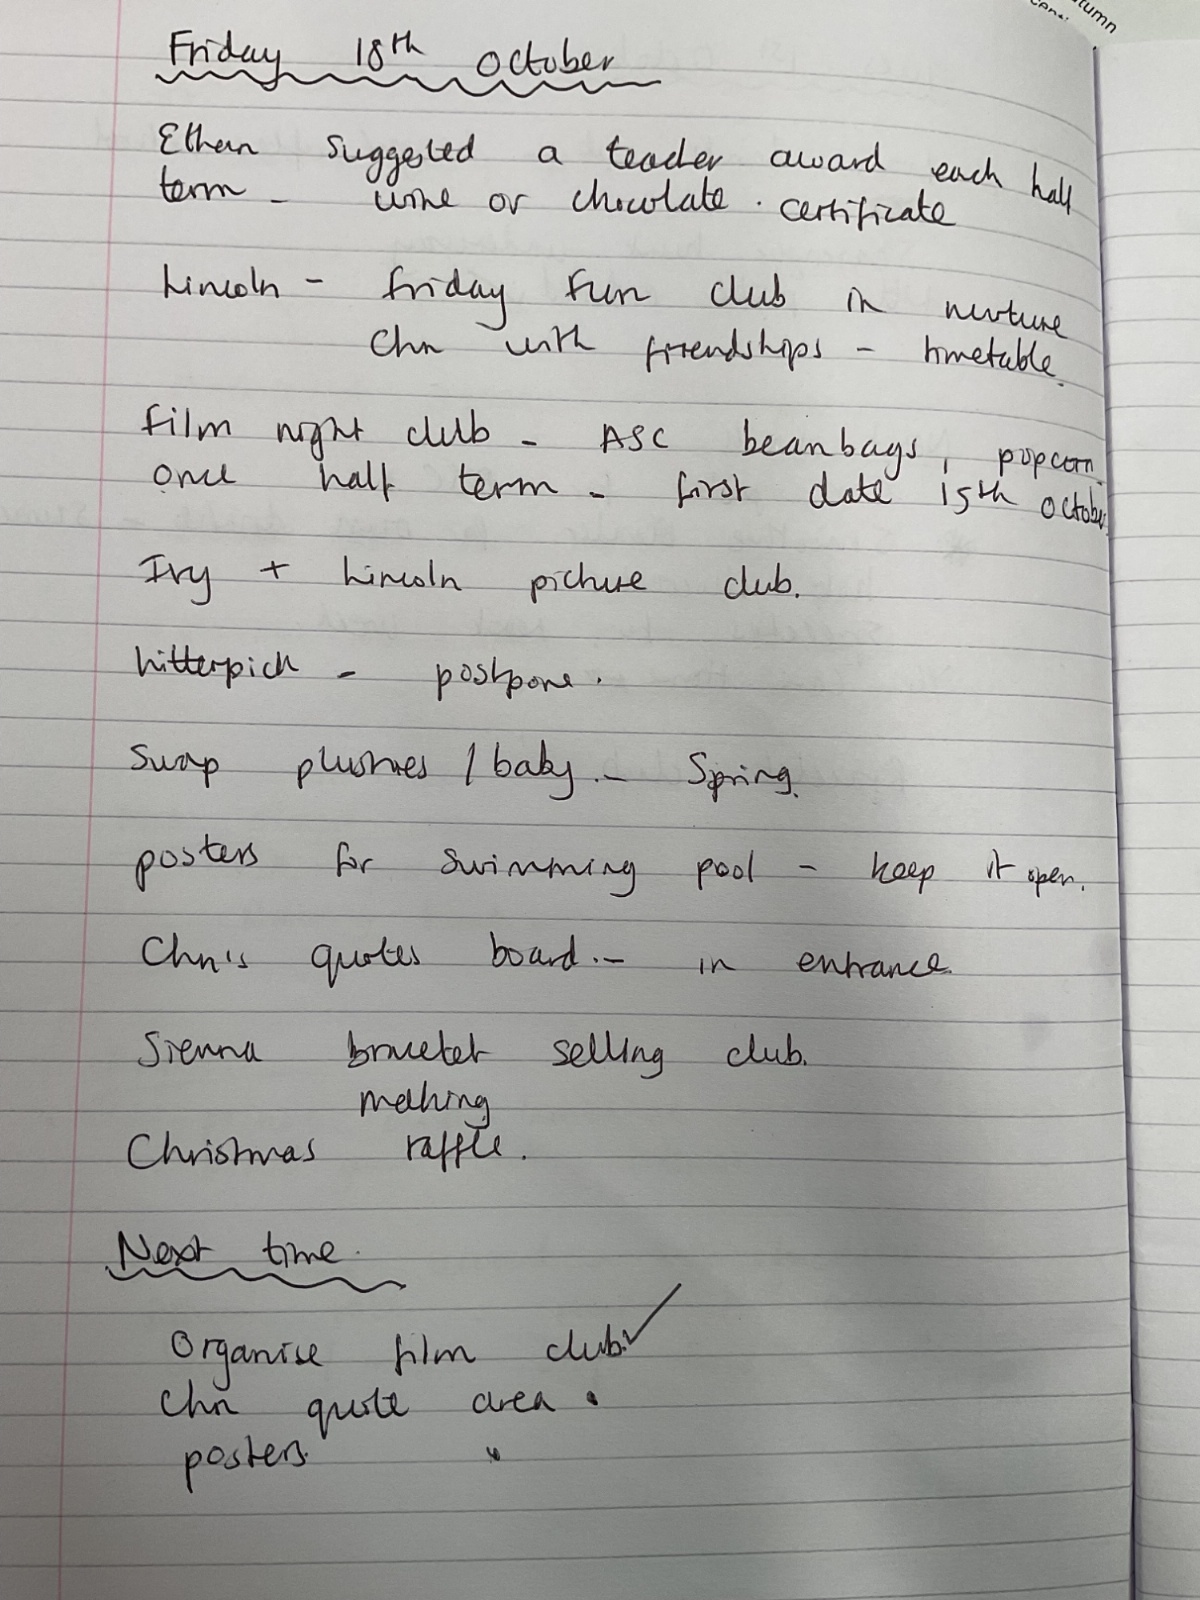 tumn
Friday 18th October
Ethan suggested a teacher award each half
term - wine or chocolate. certificate
Lincoln - friday fun club in nurture
Chn with friendships - timetable.
film night club - ASC beanbags, popcorn
once half term - first date 15th October.
Ivy + Lincoln picture club.
Litterpick - postpone.
Swap plushies / baby. - Spring.
posters for swimming pool - keep it open.
Chn's quotes board. - in entrance.
Sienna bracelet selling club.
making
Christmas raffle.
Next time.
Organise film club. ✓
Chn quote area.
posters.